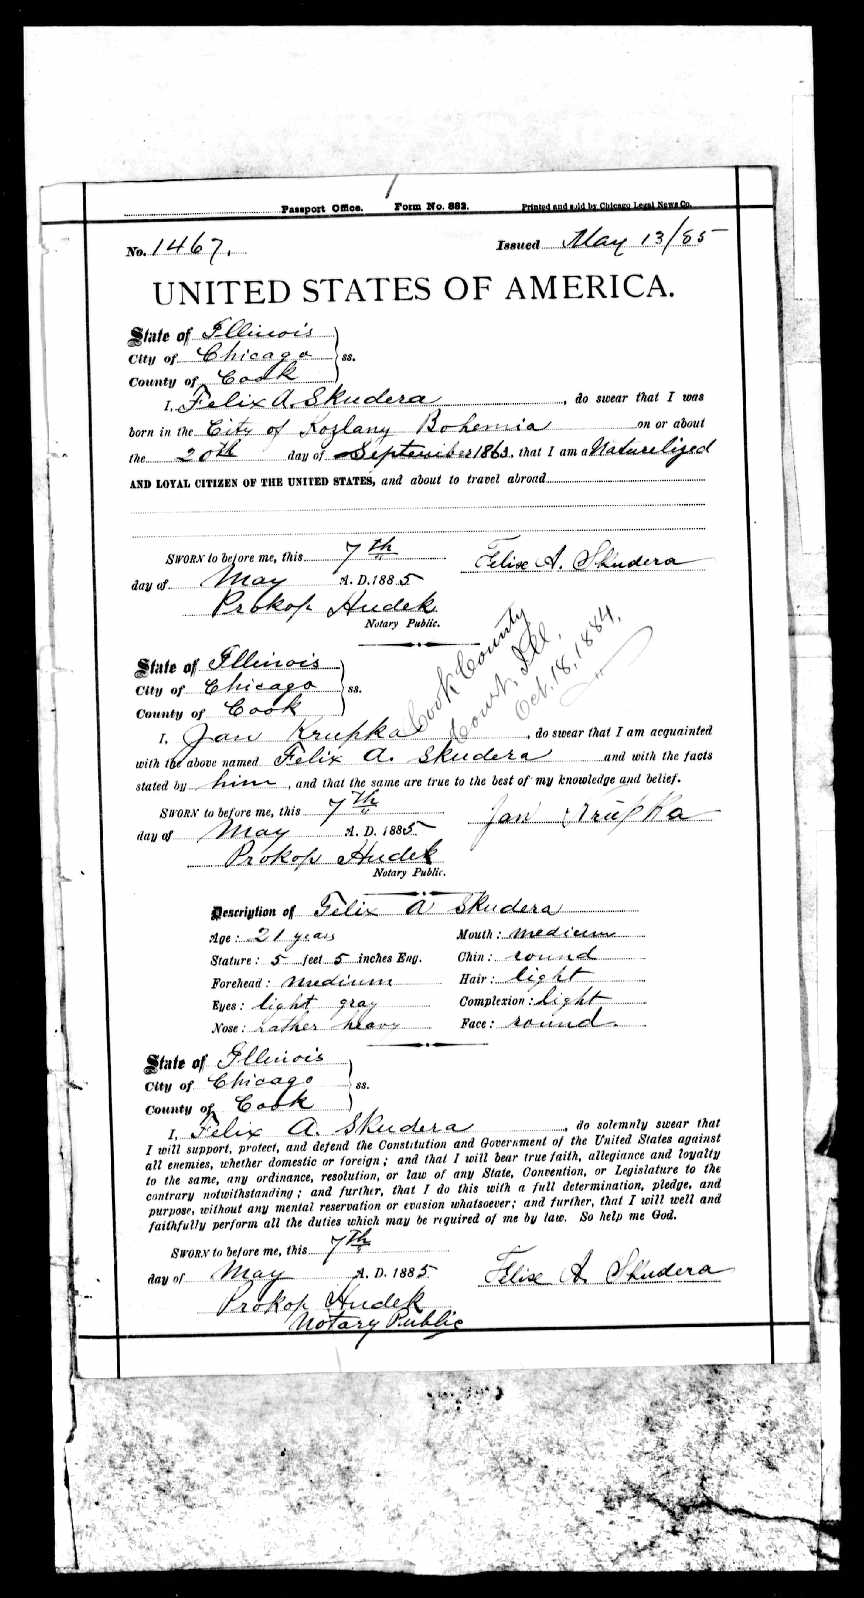 Passport Office. Form No. 882. Printed and sold by Chicago Legal News Co.
No. 1467. Issued May 13/85
UNITED STATES OF AMERICA.
State of Illinois
City of Chicago ss.
County of Cook
I, Felix A. Skudera, do swear that I was
born in the City of Kozlany Bohemia on or about
the 20th day of September 1863, that I am a Naturelized
AND LOYAL CITIZEN OF THE UNITED STATES, and about to travel abroad
SWORN to before me, this 7th
Felix A. Skudera
day of May A. D. 1885
Prokop Hudek
Notary Public.
Cook County
Court, Ill.
Oct. 18, 1884.
State of Illinois
City of Chicago ss.
County of Cook
I, Jan Krupka, do swear that I am acquainted
with the above named Felix A. Skudera and with the facts
stated by him, and that the same are true to the best of my knowledge and belief.
SWORN to before me, this 7th
Jan Krupka
day of May A. D. 1885
Prokop Hudek
Notary Public.
Description of Felix A Skudera
Age: 21 years Mouth: medium
Stature: 5 feet 5 inches Eng. Chin: round
Forehead: medium Hair: light
Eyes: light gray Complexion: light
Nose: rather heavy Face: round.
State of Illinois
City of Chicago ss.
County of Cook
I, Felix A. Skudera, do solemnly swear that
I will support, protect, and defend the Constitution and Government of the United States against
all enemies, whether domestic or foreign; and that I will bear true faith, allegiance and loyalty
to the same, any ordinance, resolution, or law of any State, Convention, or Legislature to the
contrary notwithstanding; and further, that I do this with a full determination, pledge, and
purpose, without any mental reservation or evasion whatsoever; and further, that I will well and
faithfully perform all the duties which may be required of me by law. So help me God.
SWORN to before me, this 7th
day of May A. D. 1885 Felix A. Skudera
Prokop Hudek
Notary Public